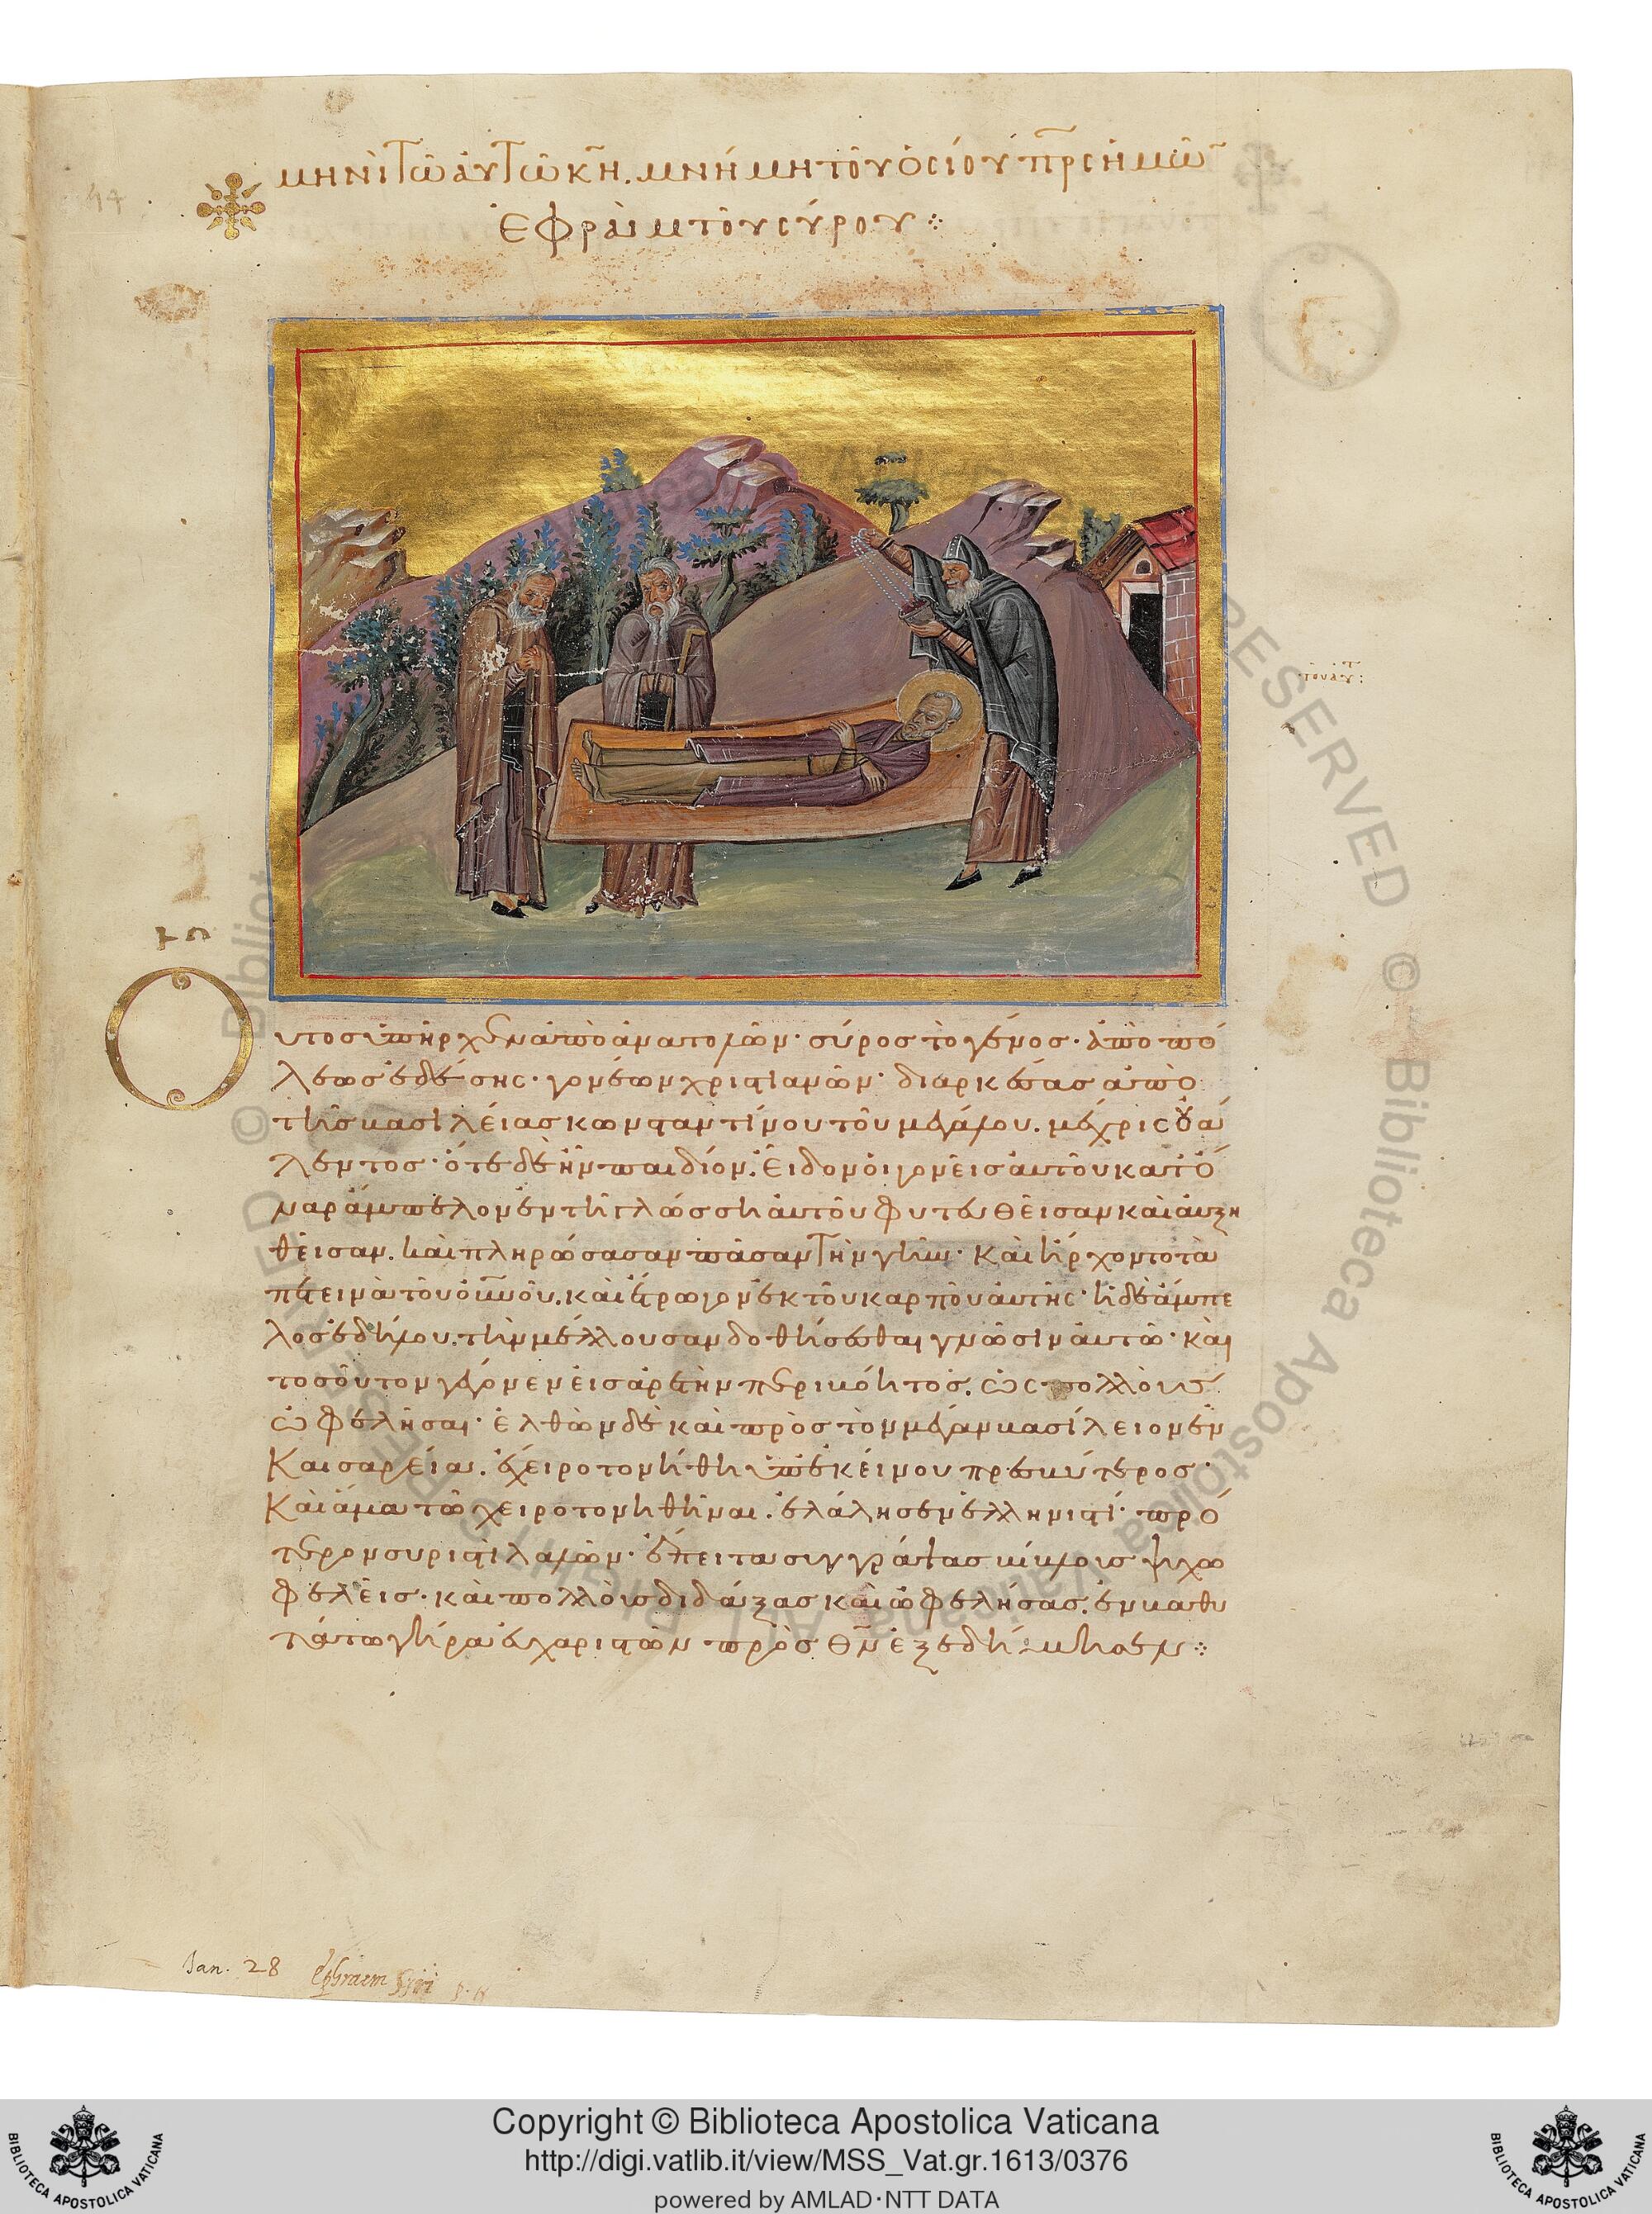 μηνὶ τῶ αὐτῶ κη̄. μνήμη τοῦ ὁσίου πρ̄ς ἡμῶ
Ἐφραὶμ τοῦ σύρου
Ουτος ὑπῆρχεν ἀπὸ ἀνατολῶν· σύρος τὸ γένος· ἀπὸ πό
λεως ἐδέσης· γονέων χριστιανῶν· διαρκέσας ἀπὸ
τῆς βασιλείας κωνσταντίνου τοῦ μεγάλου. μέχρις οὐά
λεντος· ὅτε δὲ ἦν παιδίον. Εἶδον οἱ γονεῖς αὐτοῦ κατ' ὄ
ναρ ἄμπελον ἐν τῆ γλώσση αὐτοῦ φυτευθεῖσαν καὶ αὐξη
θεῖσαν. καὶ πληρώσασαν πᾶσαν τὴν γῆν· Καὶ ἤρχοντο τὰ
πετεινὰ τοῦ οὐνοῦ. καὶ ἔτρωγον ἐκ τοῦ καρποῦ αὐτῆς· ἡ δὲ ἄμπε
λος ἐδήλου. τὴν μέλλουσαν δοθήσεσθαι γνῶσιν αὐτῶ· καὶ
τοσοῦτον γέγονεν εἰς ἀρετὴν περιβόητος. ὡς πολλοὺς
ὠφελῆσαι· ἐλθὼν δὲ καὶ πρὸς τὸν μέγαν βασίλειον ἐν
Καισαρεία. ἐχειροτονήθη ὑπ' ἐκείνου πρεσβύτερος·
Καὶ ἅμα τῶ χειροτονηθῆναι. ἐλάλησεν ἑλληνιστί· πρό
τερον συριστὶ λαλῶν· ἔπειτα συγγράψας βίβλους ψυχω
φελεῖς· καὶ πολλοὺς διδάξας καὶ ὠφελήσας. ἐν βαθυ
τάτω γήρα εὐχαριστῶν πρὸς θν̄ ἐξεδήμησεν
Ian. 28 Ephraem Syri
RESERVED © Biblioteca Apostolica Vaticana ALL RIGHTS RESERVED © Bibliot
Copyright © Biblioteca Apostolica Vaticana
http://digi.vatlib.it/view/MSS_Vat.gr.1613/0376
powered by AMLAD·NTT DATA
BIBLIOTECA APOSTOLICA VATICANA
BIBLIOTECA APOSTOLICA VATICANA